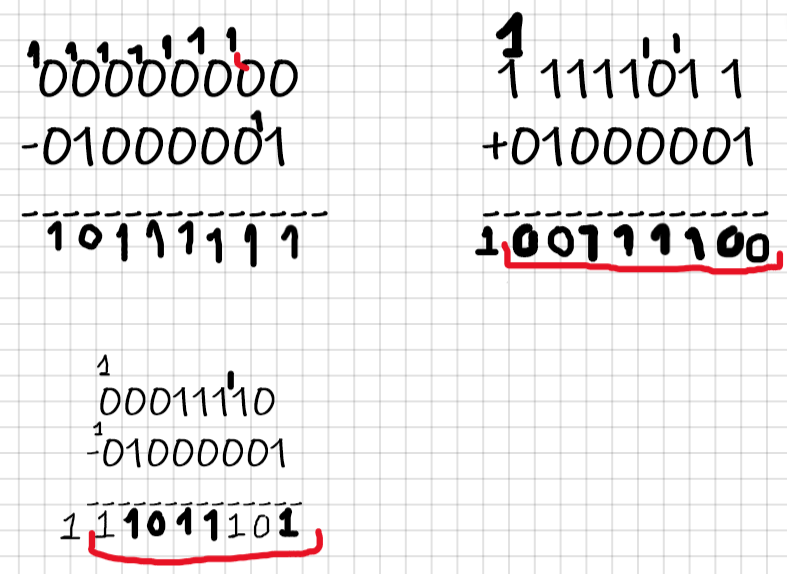 1 1 1 1 1 1 1
00000000
1
-01000001
10111111
1 1 1
1 1111011
+01000001
1 00111100
1 1
00011110
1
-01000001
1 11011101